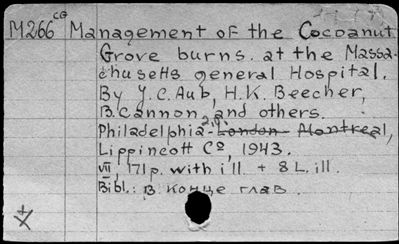 M266 CG Management of the Cocoanut
Grove burns at the Massa-
chusetts general Hospital.
By Y.C. Aub, H.K. Beecher,
B. Cannon and others.
Philadelphia - London - Montreal,
Lippincott Cº, 1943.
VII, 171 p. with ill. + 8 L. ill.
Bibl.: в конце глав.